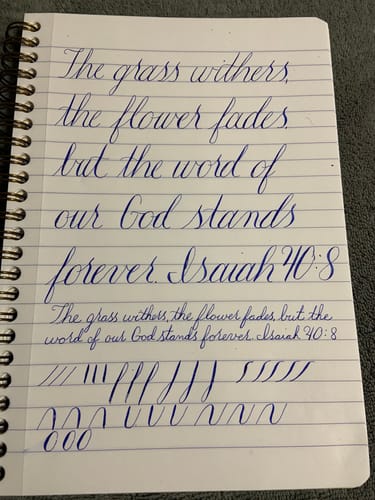 The grass withers,
the flower fades,
but the word of
our God stands
forever. Isaiah 40:8
The grass withers, the flower fades, but the
word of our God stands forever. Isaiah 40:8